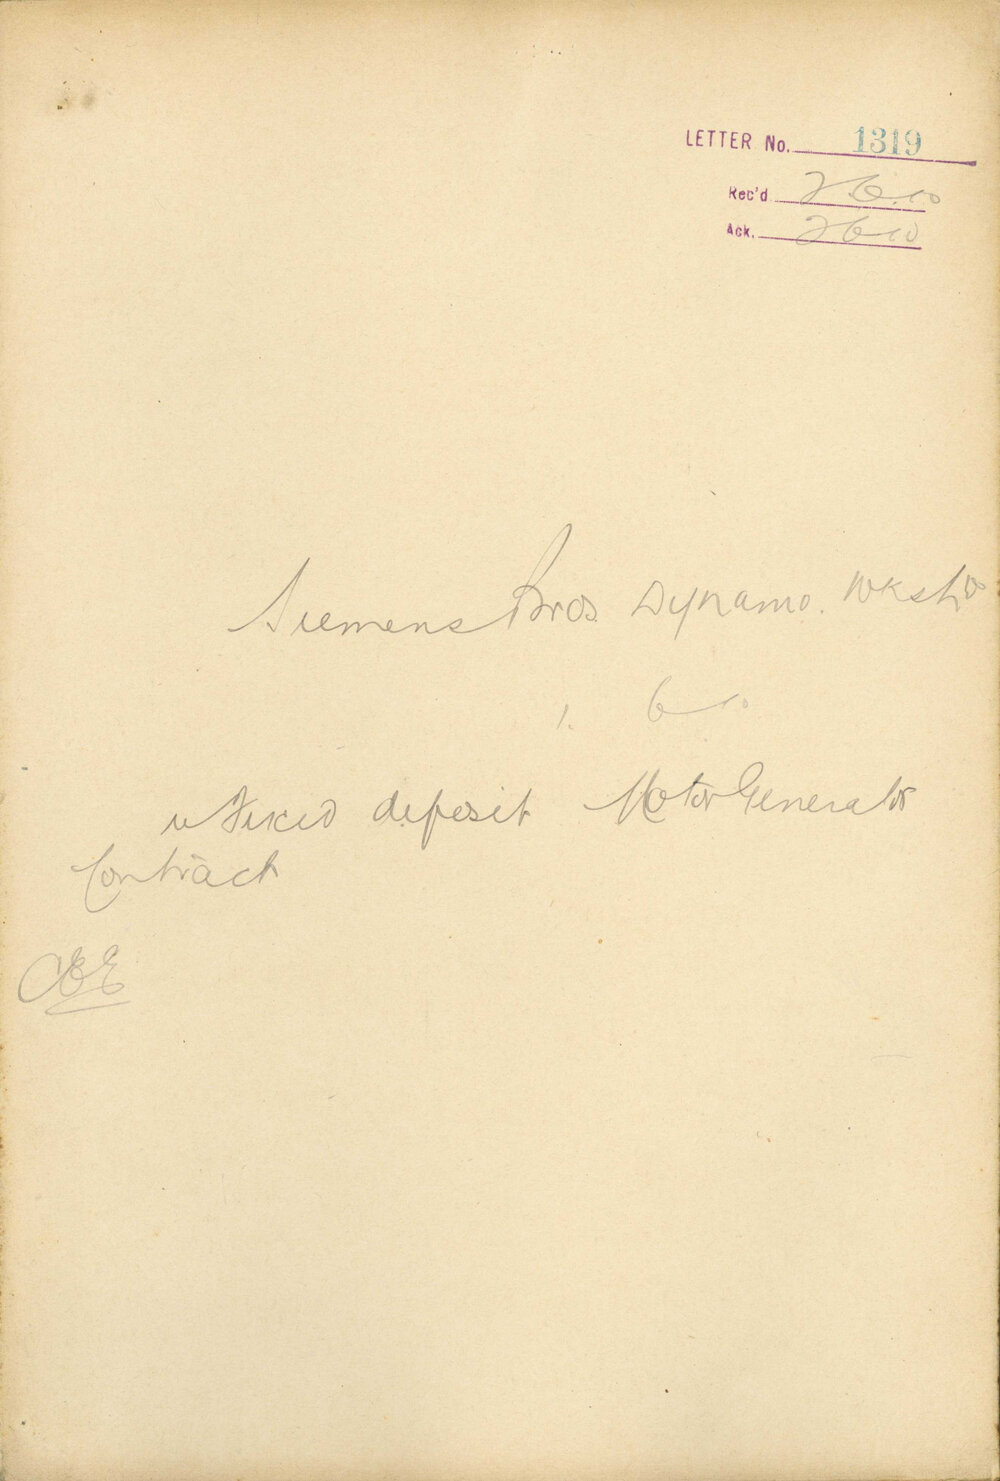 LETTER No. 1319
Rec'd 2.6.10
Ack. 2 6 10
Siemens Bros Dynamo. Wks
1. 6 10
Fixed deposit Motor Generator
Contract